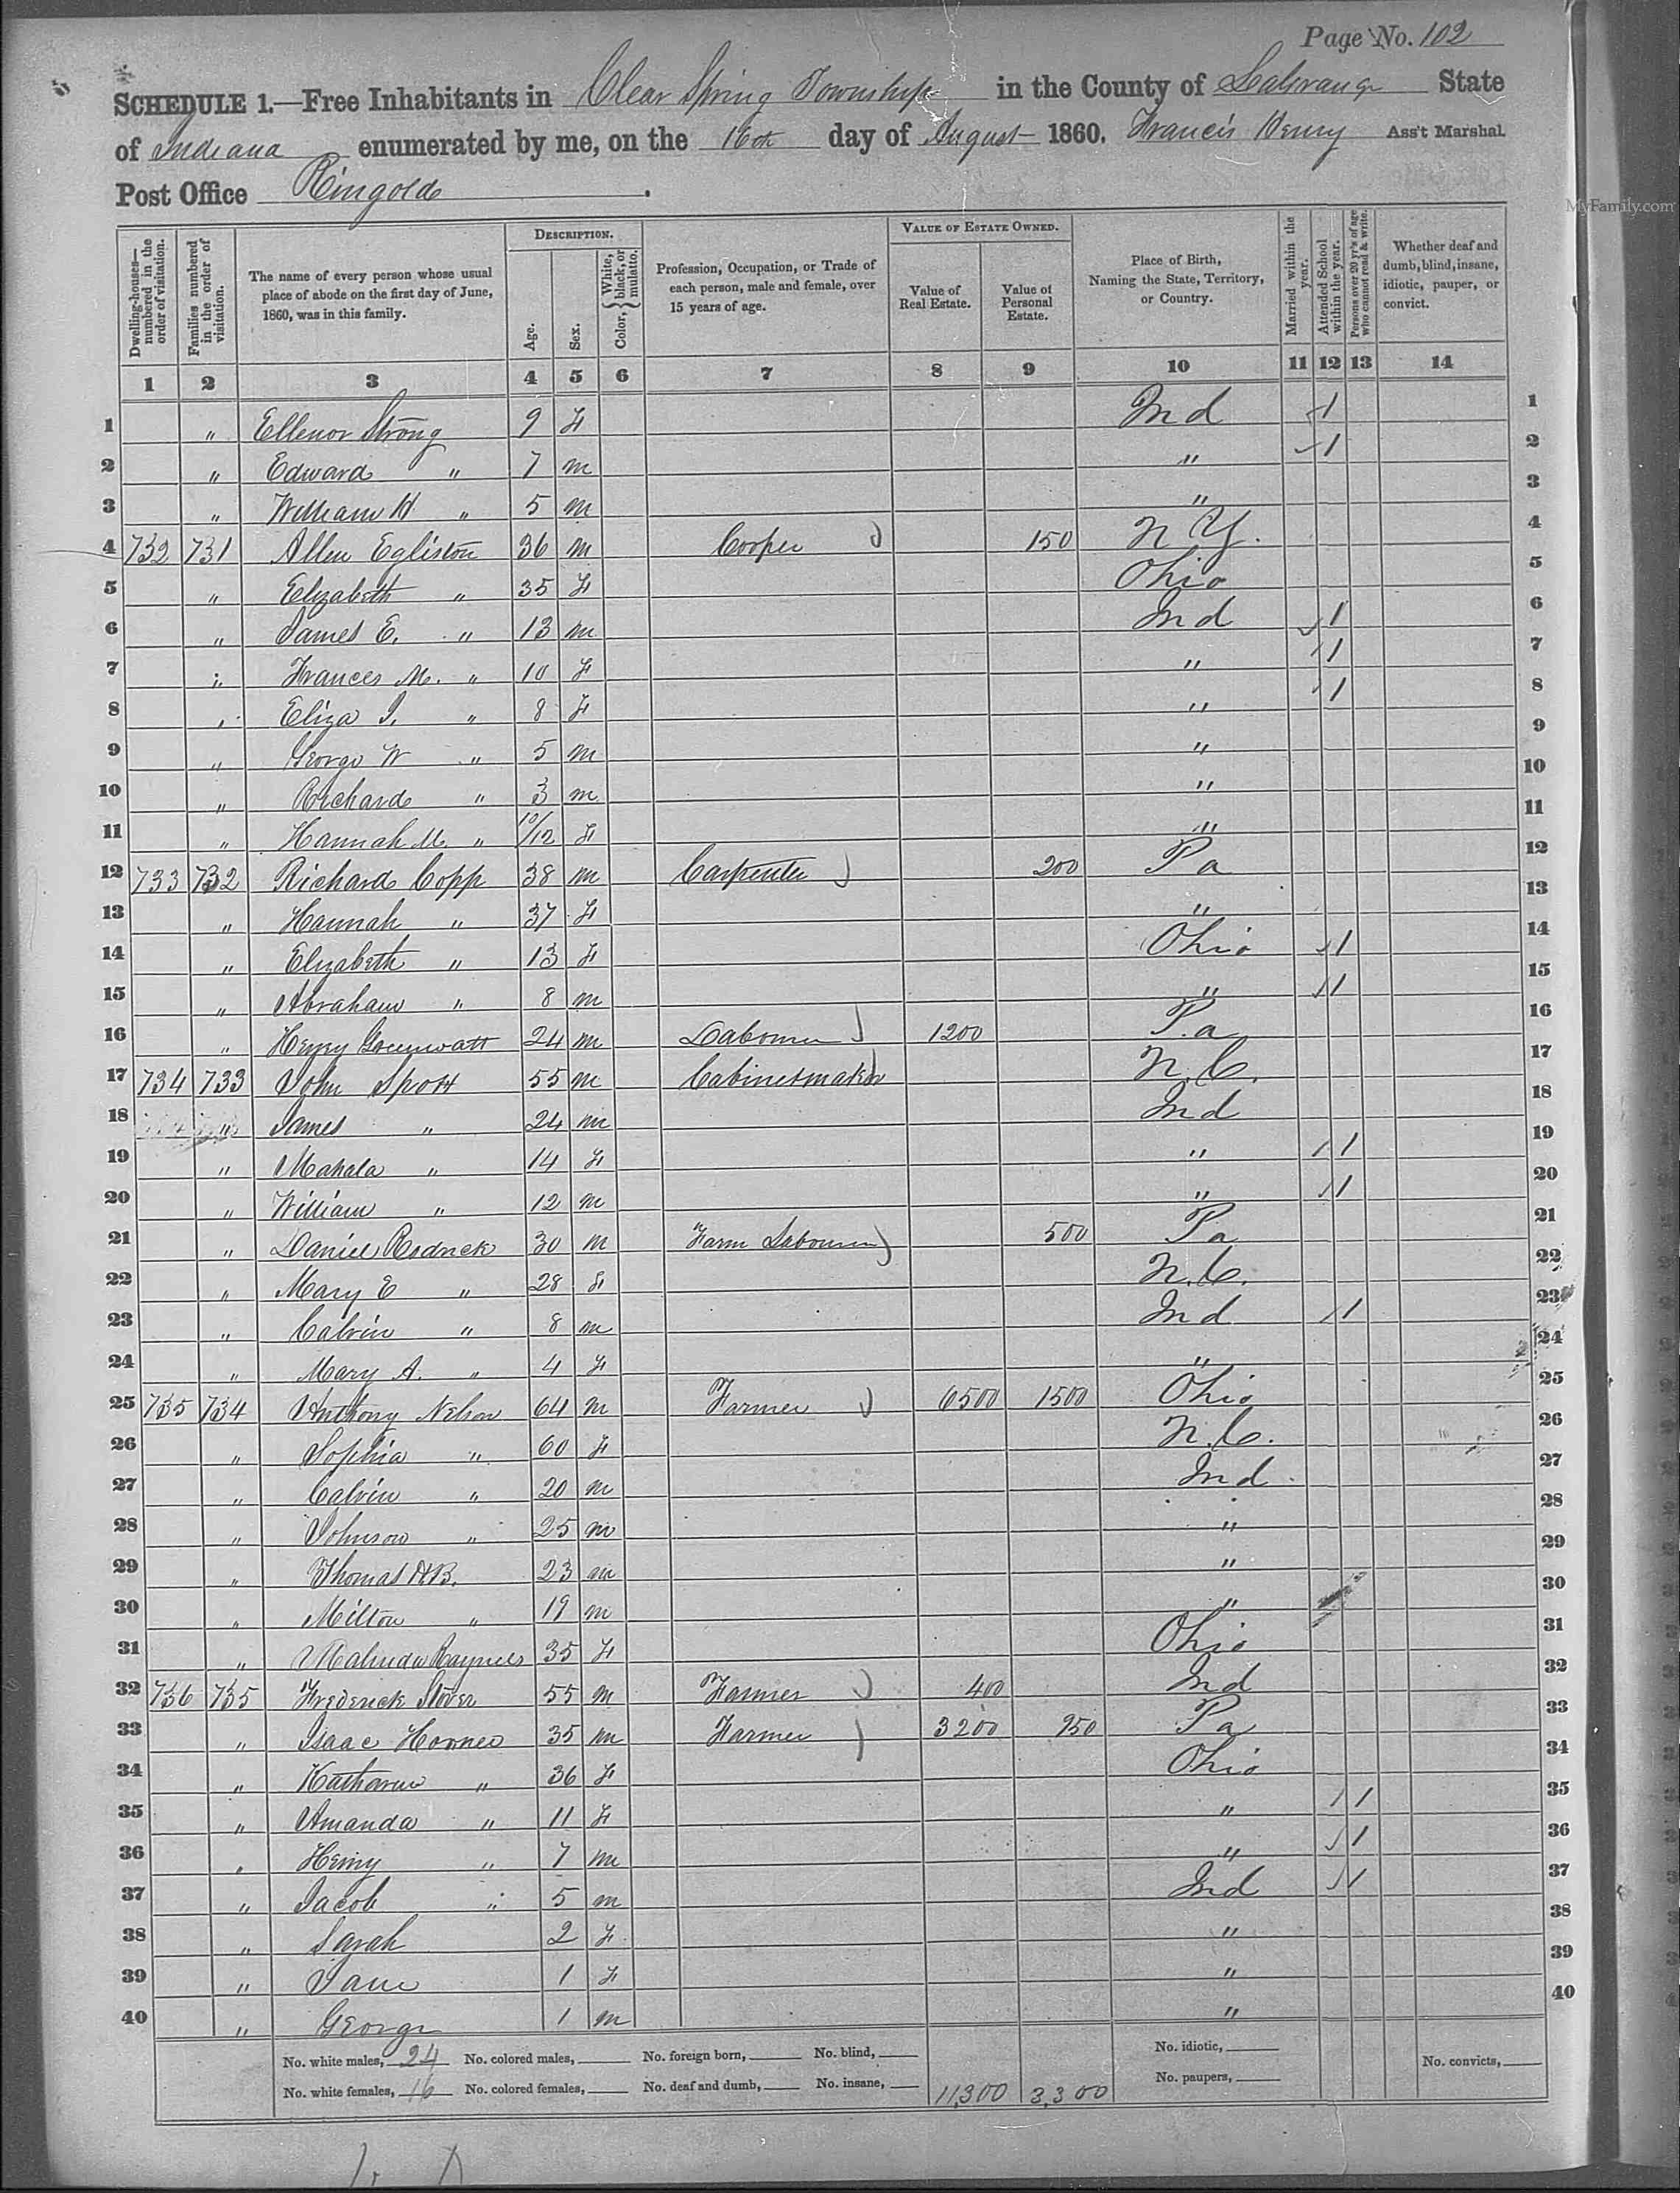 Page No. 102
SCHEDULE 1.—Free Inhabitants in Clear Spring Township in the County of LaGrange State
of Indiana enumerated by me, on the 16th day of August 1860. Francis Henry Ass't Marshal.
Post Office Ringold.
MyFamily.com
Dwelling-houses—numbered in the order of visitation.
Families numbered in the order of visitation.
The name of every person whose usual place of abode on the first day of June, 1860, was in this family.
DESCRIPTION.
Age.
Sex.
Color, { White, black, or mulatto.
Profession, Occupation, or Trade of each person, male and female, over 15 years of age.
VALUE OF ESTATE OWNED.
Value of Real Estate.
Value of Personal Estate.
Place of Birth, Naming the State, Territory, or Country.
Married within the year.
Attended School within the year.
Persons over 20 yr's of age who cannot read & write.
Whether deaf and dumb, blind, insane, idiotic, pauper, or convict.
1 2 3 4 5 6 7 8 9 10 11 12 13 14
1 " Ellenor Strong 9 f Ind 1 1
2 " Edward " 7 m " 1 2
3 " William H " 5 m " 3
4 732 731 Allen Egliston 36 m Cooper 150 N Y. 4
5 " Elizabeth " 35 f Ohio 5
6 " James E. " 13 m Ind 1 6
7 " Frances M. " 10 f " 1 7
8 " Eliza J. " 8 f " 1 8
9 " George W " 5 m " 9
10 " Richard " 3 m " 10
11 " Hannah M. " 10/12 f " 11
12 733 732 Richard Copp 38 m Carpenter 200 Pa 12
13 " Hannah " 37 f " 13
14 " Elizabeth " 13 f Ohio 1 14
15 " Abraham " 8 m " 1 15
16 " Henry 24 m Labourer 1200 Pa 16
17 734 733 John Spott 55 m Cabinetmaker N.C. 17
18 " James " 24 m Ind 18
19 " Mahala " 14 f " 1 19
20 " William " 12 m " 1 20
21 " Daniel 30 m Farm Labourer 500 Pa 21
22 " Mary E " 28 f N.C. 22
23 " Calvin " 8 m Ind 1 23
24 " Mary A. " 4 f " 24
25 735 734 Anthony Nelson 64 m Farmer 6500 1500 Ohio 25
26 " Sophia " 60 f N.C. 26
27 " Calvin " 20 m Ind. 27
28 " Johnson " 25 m " 28
29 " Thomas H.B. 23 m " 29
30 " Milton " 19 m " 30
31 " Malinda Raynes 35 f Ohio 31
32 736 735 Frederick Stover 55 m Farmer 400 Ind 32
33 " Isaac Horner 35 m Farmer 3200 950 Pa 33
34 " Katharine " 36 f Ohio 34
35 " Amanda " 11 f " 1 35
36 " Henry " 7 m " 1 36
37 " Jacob " 5 m Ind 1 37
38 " Sarah 2 f " 38
39 " Jane 1 f " 39
40 " George 1 m " 40
No. white males, 24 No. colored males, No. foreign born, No. blind, No. idiotic, No. convicts,
No. white females, 16 No. colored females, No. deaf and dumb, No. insane, 11,300 3,300 No. paupers,